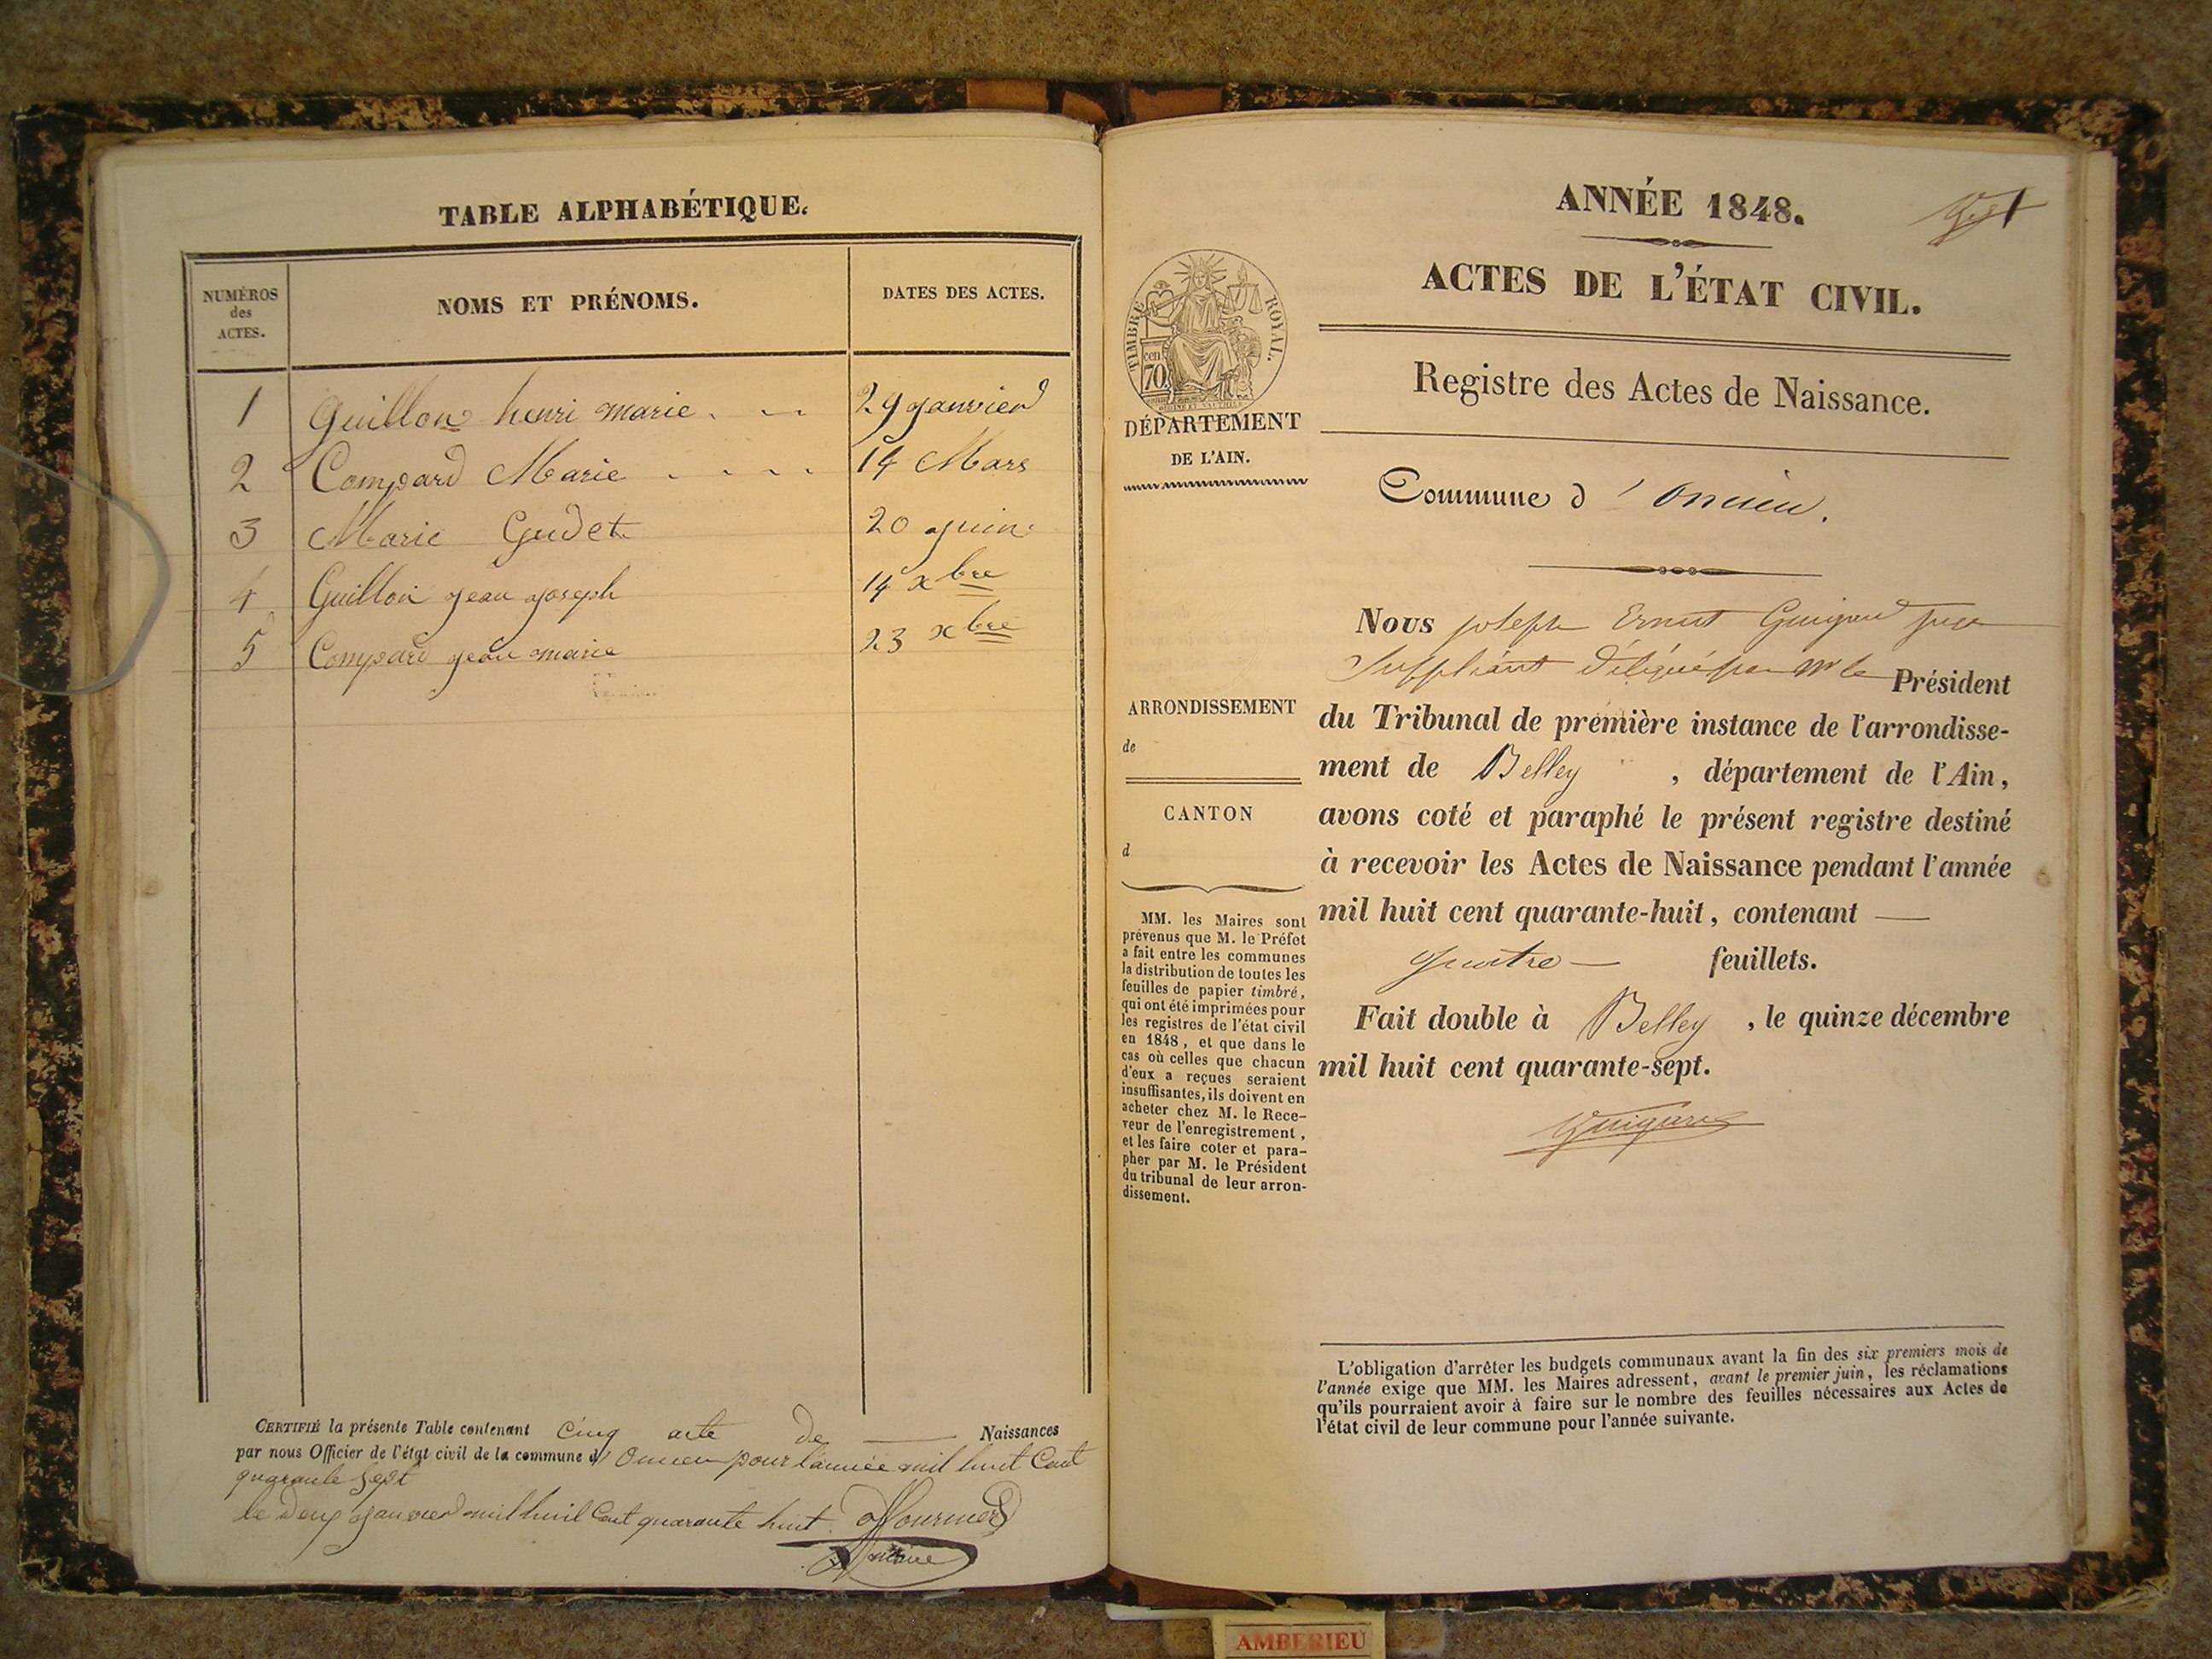 TABLE ALPHABÉTIQUE.
NUMÉROS
des
ACTES.
NOMS ET PRÉNOMS.
DATES DES ACTES.
1 Guillon henri marie 29 janvier
2 Compard Marie 14 Mars
3 Marie Gudet 20 juin
4 Guillon jean joseph 14 xbre
5 Compard jean marie 23 xbre
CERTIFIÉ la présente Table contenant cinq acte de Naissances
par nous Officier de l'état civil de la commune d' Oncieu pour l'année mil huit Cent
quarante sept
le Deux janvier mil huit Cent quarante huit.
ANNÉE 1848.
ACTES DE L'ÉTAT CIVIL.
TIMBRE ROYAL.
70 cen
DÉPARTEMENT
DE L'AIN.
Registre des Actes de Naissance.
Commune d'Oncieu.
ARRONDISSEMENT
de
CANTON
d
MM. les Maires sont
prévenus que M. le Préfet
a fait entre les communes
la distribution de toutes les
feuilles de papier timbré,
qui ont été imprimées pour
les registres de l'état civil
en 1848, et que dans le
cas où celles que chacun
d'eux a reçues seraient
insuffisantes, ils doivent en
acheter chez M. le Rece-
veur de l'enregistrement,
et les faire coter et para-
pher par M. le Président
du tribunal de leur arron-
dissement.
Nous joseph Ernest Guigard juge
Suppléant Délégué par Mr le Président
du Tribunal de première instance de l'arrondisse-
ment de Belley, département de l'Ain,
avons coté et paraphé le présent registre destiné
à recevoir les Actes de Naissance pendant l'année
mil huit cent quarante-huit, contenant —
quatre — feuillets.
Fait double à Belley, le quinze décembre
mil huit cent quarante-sept.
Guigard
L'obligation d'arrêter les budgets communaux avant la fin des six premiers mois de
l'année exige que MM. les Maires adressent, avant le premier juin, les réclamations
qu'ils pourraient avoir à faire sur le nombre des feuilles nécessaires aux Actes de
l'état civil de leur commune pour l'année suivante.
AMBERIEU